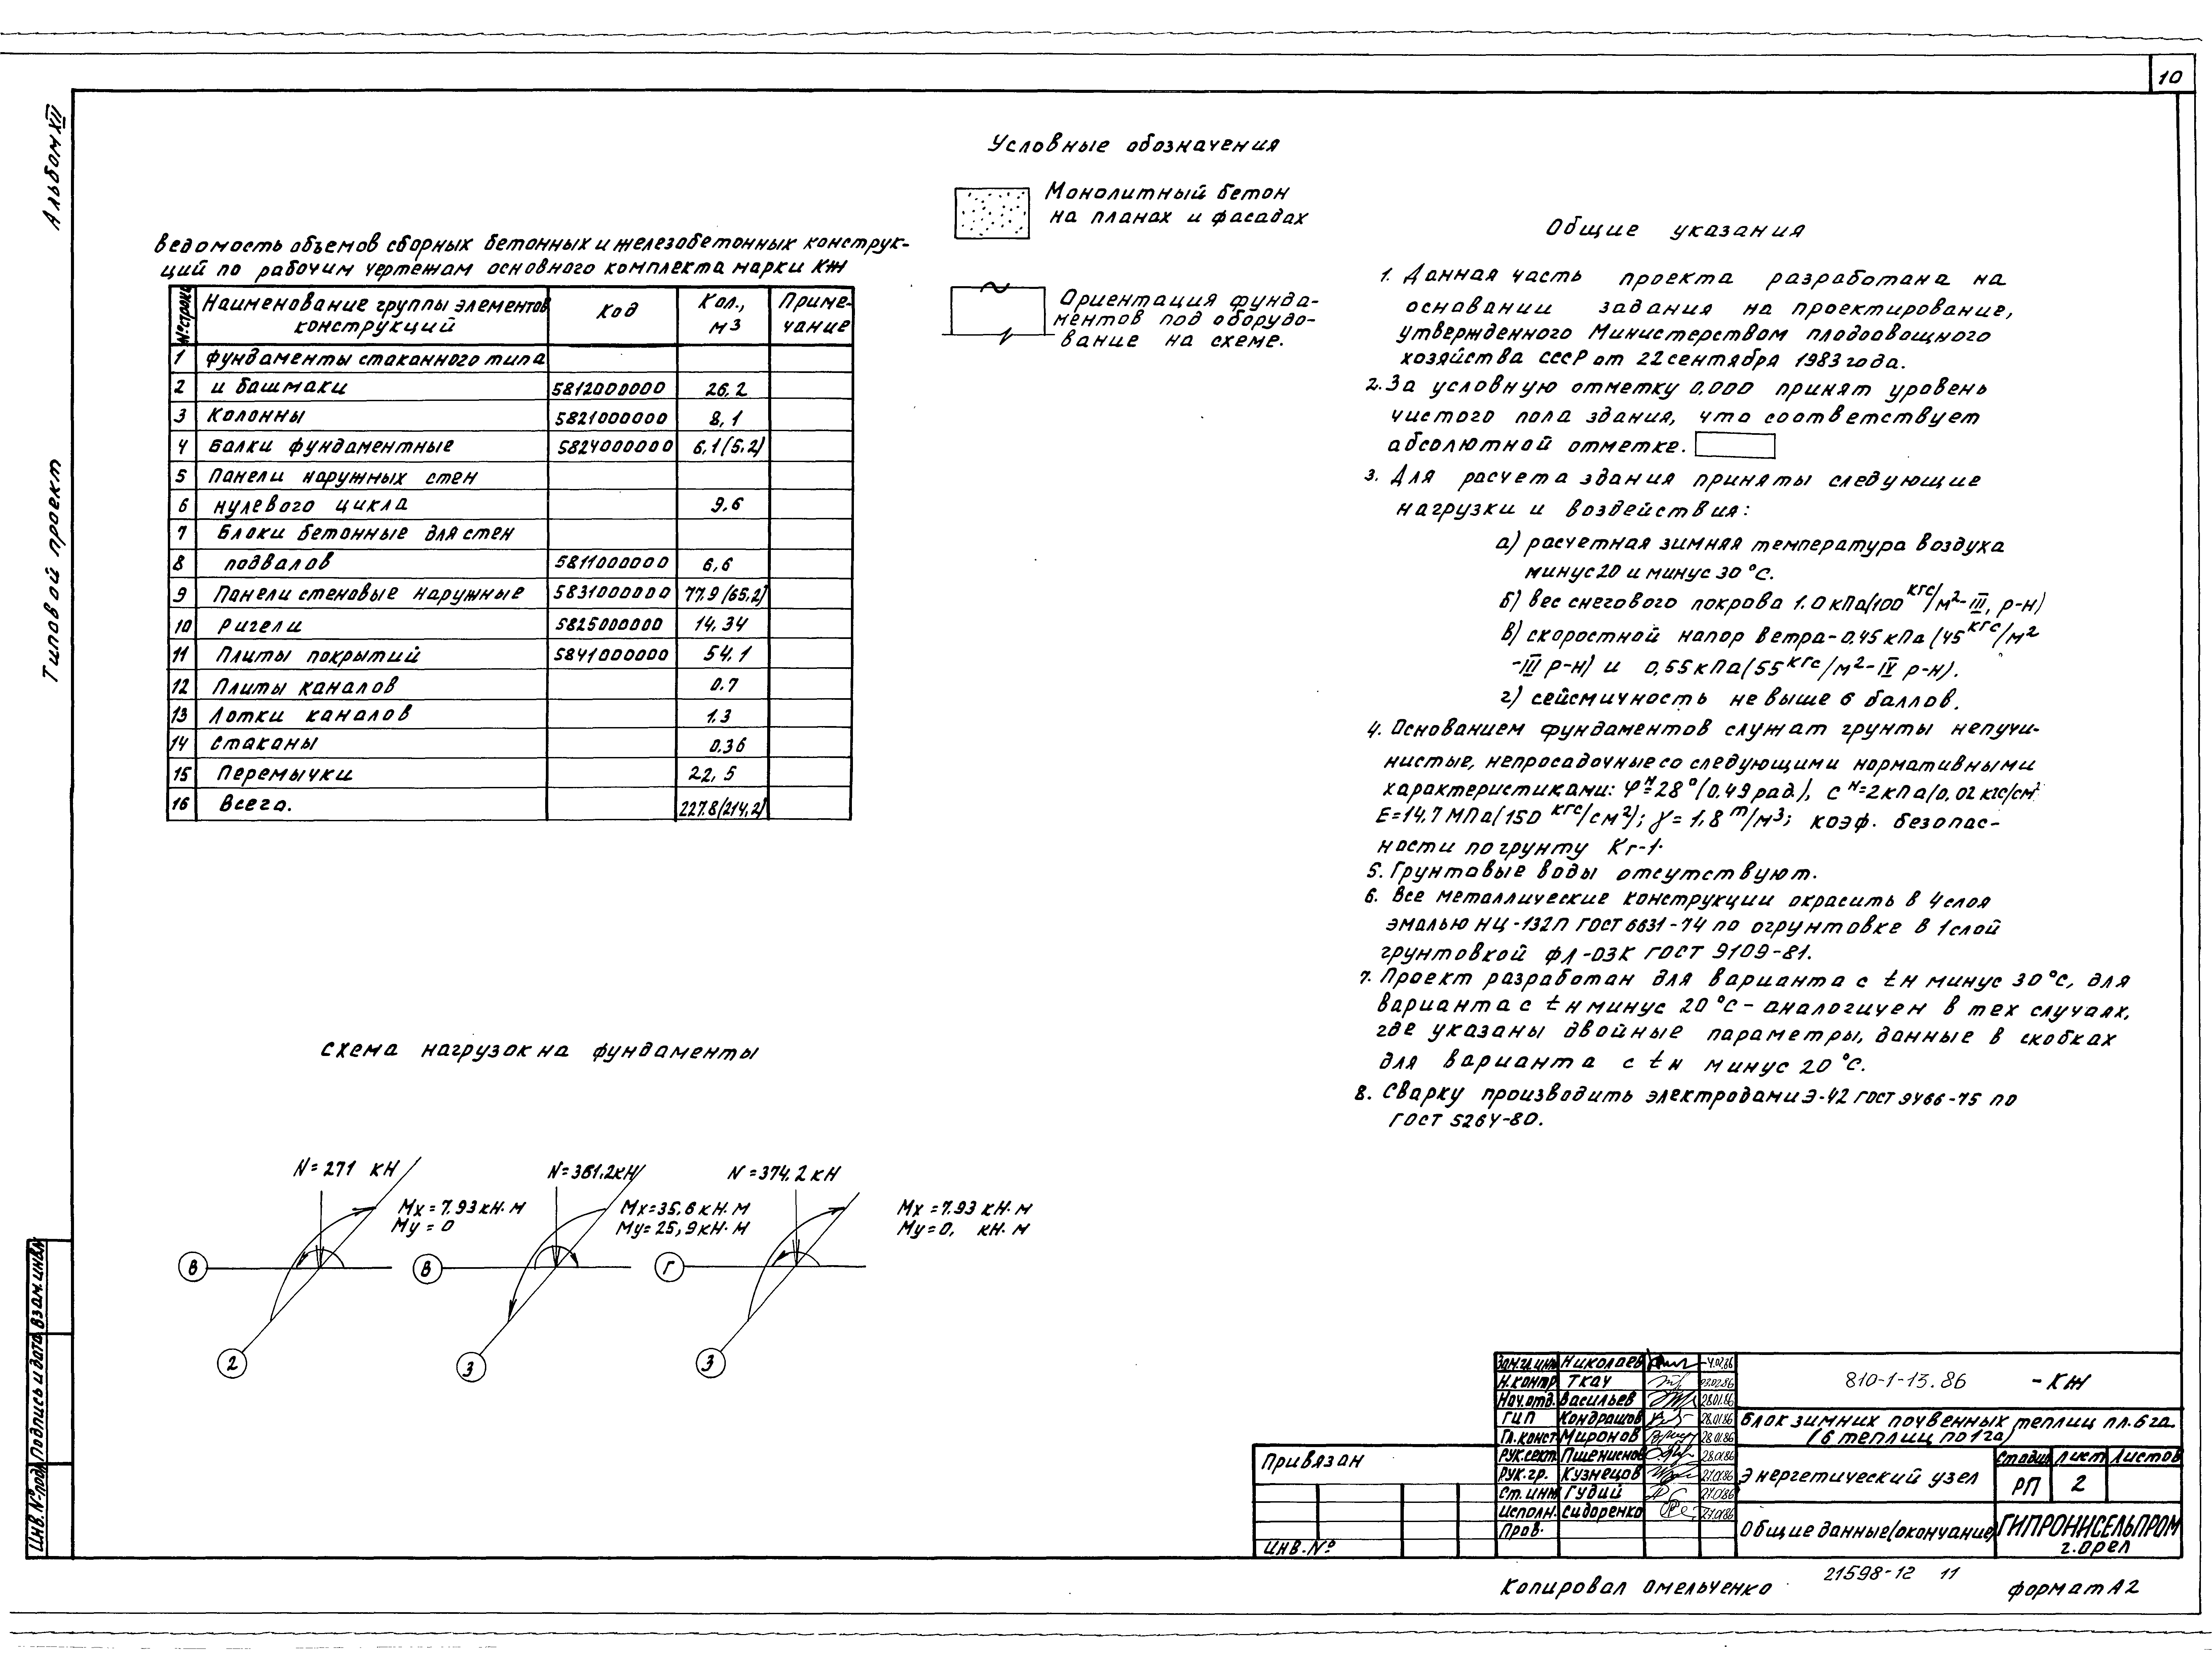 10
Альбом XII
Типовой проект
Условные обозначения
Монолитный бетон
на планах и фасадах
Ориентация фунда-
ментов под оборудо-
вание на схеме.
Ведомость объемов сборных бетонных и железобетонных конструк-
ций по рабочим чертежам основного комплекта марки КЖ
№ строки | Наименование группы элементов конструкций | Код | Кол., м3 | Приме-чание
1 фундаменты стаканного типа
2 и башмаки 5812000000 26,2
3 Колонны 5821000000 8,1
4 Балки фундаментные 5824000000 6,1(5,2)
5 Панели наружных стен
6 нулевого цикла 9,6
7 Блоки бетонные для стен
8 подвалов 5811000000 6,6
9 Панели стеновые наружные 5831000000 77.9(65,2)
10 Ригели 5825000000 14,34
11 Плиты покрытий 5841000000 54,1
12 Плиты каналов 0.7
13 Лотки каналов 1.3
14 Стаканы 0.36
15 Перемычки 22,5
16 Всего. 227.8(214,2)
Общие указания
1. Данная часть проекта разработана на
основании задания на проектирование,
утвержденного Министерством плодоовощного
хозяйства СССР от 22 сентября 1983 года.
2. За условную отметку 0,000 принят уровень
чистого пола здания, что соответствует
абсолютной отметке.
3. Для расчета здания приняты следующие
нагрузки и воздействия:
а) расчетная зимняя температура воздуха
минус 20 и минус 30°С.
б) вес снегового покрова 1.0 кПа(100 кгс/м2-III, р-н)
в) скоростной напор ветра-0,45 кПа (45 кгс/м2
-III р-н) и 0,55 кПа(55 кгс/м2-IV р-н).
г) сейсмичность не выше 6 баллов.
4. Основанием фундаментов служат грунты непучи-
нистые, непросадочные со следующими нормативными
характеристиками: φн=28°(0.49 рад.), Сн=2кПа(0,02 кгс/см2
Е=14,7 МПа(150 кгс/см2); γ=1,8 т/м3; коэф. безопас-
ности по грунту Кг-1.
5. Грунтовые воды отсутствуют.
6. Все металлические конструкции окрасить в 4 слоя
эмалью НЦ-132П ГОСТ 6631-74 по огрунтовке в 1 слой
грунтовкой ФЛ-03К ГОСТ 9109-81.
7. Проект разработан для варианта с tн минус 30°С, для
варианта с tн минус 20°С-аналогичен в тех случаях,
где указаны двойные параметры, данные в скобках
для варианта с tн минус 20°С.
8. Сварку производить электродами Э-42 ГОСТ 9466-75 по
ГОСТ 5264-80.
Схема нагрузок на фундаменты
N=271 кН
Mx=7.93 кН·м
My=0
В
2
N=361.2кН
Mx=35,6 кН·м
My=25,9 кН·м
В
3
N=374.2 кН
Mx=7.93 кН·м
My=0, кН·м
Г
3
Инв. № подл. Подпись и дата Взам. инв. №
Привязан
Инв. №
Зам.гл.инж Николаев 4.02.86
Н.контр Ткач 03.02.86
Нач.отд. Васильев 28.01.86
ГИП Кондрашов 28.01.86
Гл.конст. Миронов 28.01.86
Рук.сект. Пшениснов 28.01.86
Рук.гр. Кузнецов 27.01.86
Ст.инж Гудий 27.01.86
Исполн. Сидоренко 27.01.86
Пров.
810-1-13.86 -КЖ
Блок зимних почвенных теплиц пл.6га.
(6 теплиц по 1га)
Энергетический узел
Стадия Лист Листов
РП 2
Общие данные(окончание)
ГИПРОНИСЕЛЬПРОМ
г.Орел
Копировал Омельченко
21598-12 11
формат А2